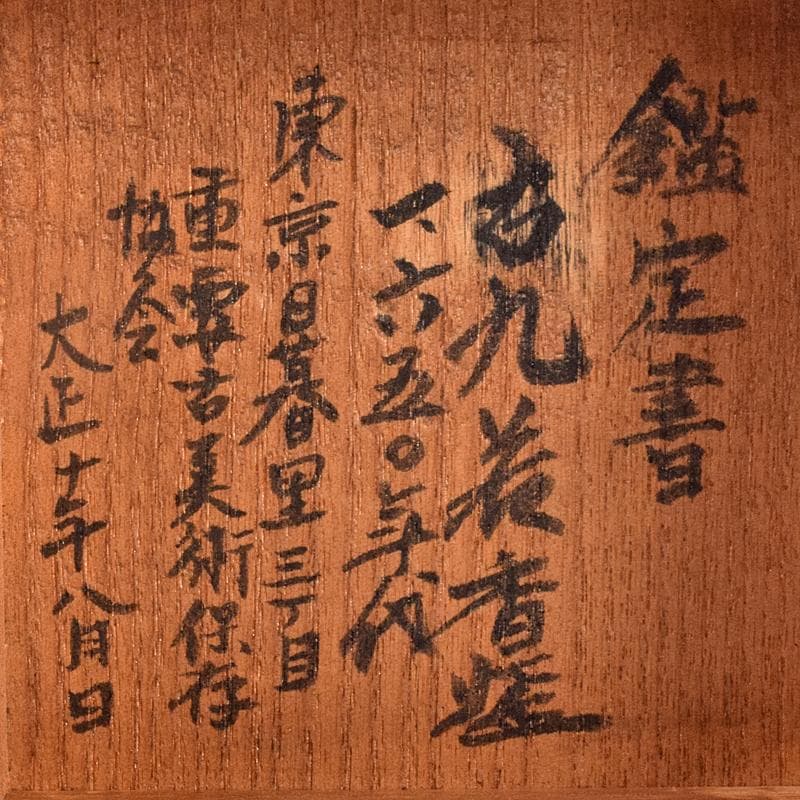 鑑定書
古九谷香爐
一、六五〇年代
東京日暮里三丁目
重要古美術保存
協会
大正十年八月日